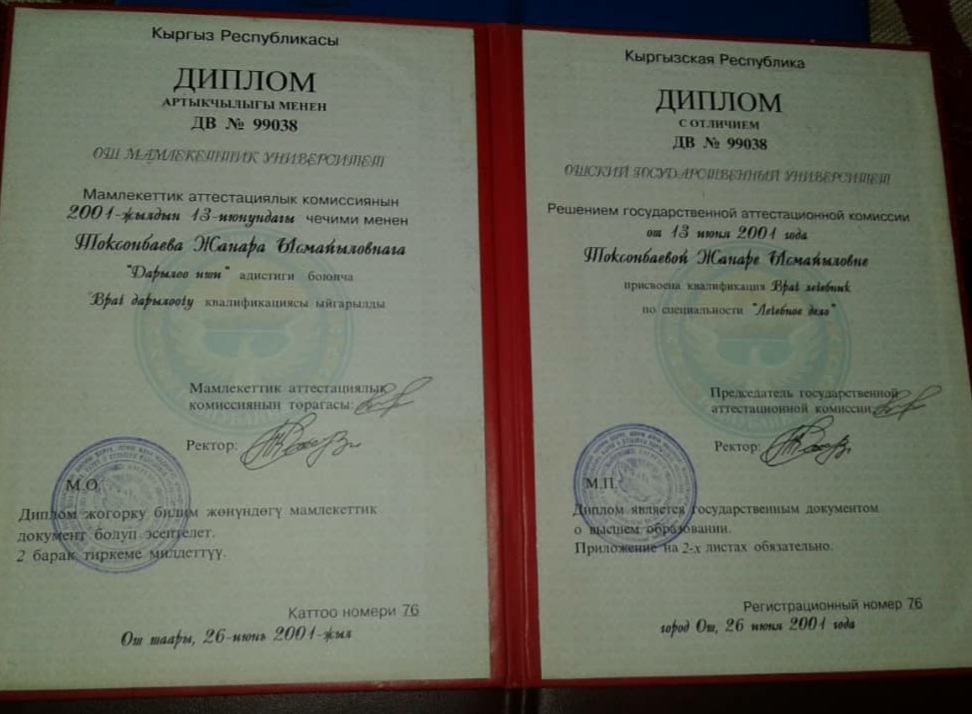 Кыргыз Республикасы
ДИПЛОМ
АРТЫКЧЫЛЫГЫ МЕНЕН
ДВ № 99038
ОШ МАМЛЕКЕТТИК УНИВЕРСИТЕТ
Мамлекеттик аттестациялык комиссиянын
2001-жылдын 13-июнундагы чечими менен
Токсонбаева Жанара Ысмайыловнага
"Дарылоо иши" адистиги боюнча
"Врач дарылоочу квалификациясы ыйгарылды
Мамлекеттик аттестациялык
комиссиянын торагасы:
Ректор:
М.О.
Диплом жогорку билим жөнүндөгү мамлекеттик
документ болуп эсептелет.
2 барак тиркеме милдеттүү.
Каттоо номери 76
Ош шаары, 26-июнь 2001-жыл
Кыргызская Республика
ДИПЛОМ
С ОТЛИЧИЕМ
ДВ № 99038
ОШСКИЙ ГОСУДАРСТВЕННЫЙ УНИВЕРСИТЕТ
Решением государственной аттестационной комиссии
от 13 июня 2001 года
Токсонбаевой Жанаре Ысмайыловне
присвоена квалификация Врач лечебник
по специальности "Лечебное дело"
Председатель государственной
аттестационной комиссии:
Ректор:
М.П.
Диплом является государственным документом
о высшем образовании.
Приложение на 2-х листах обязательно.
Регистрационный номер 76
город Ош, 26 июня 2001 года